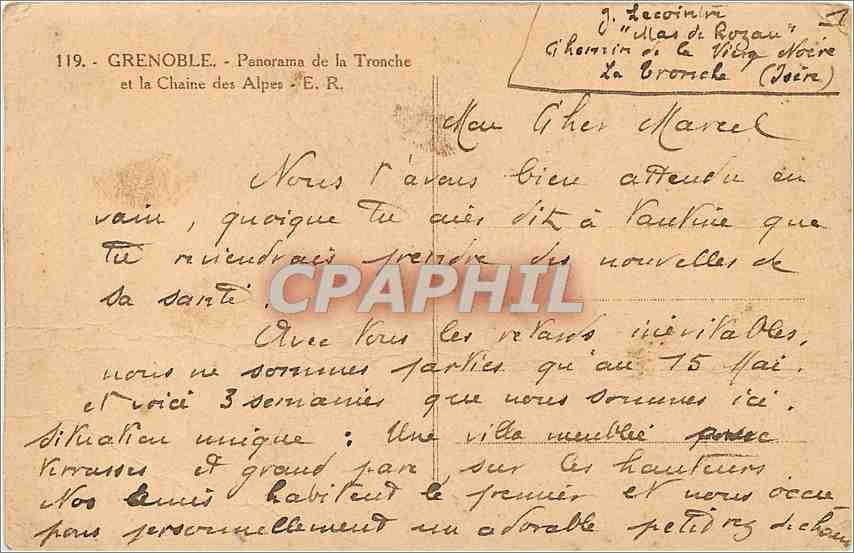 119. - GRENOBLE. - Panorama de la Tronche
et la Chaine des Alpes - E. R.
g. Lecointre
"Mas de Rozan"
Chemin de la Vierg Noire
La Tronche (Isère)
1
Mon Cher Marcel
Nous t'avons bien attendu en
vain, quoique tu aies dit à Tantine que
tu reviendrais prendre des nouvelles de
sa santé.
CPAPHIL
Avec tous les retards inévitables,
nous ne sommes parties qu'au 15 Mai.
et voici 3 semaines que nous sommes ici.
Situation unique : Une villa meublée avec
terrasses et grand parc sur les hauteurs
Nos amis habitent le premier et nous occu
pons personnellement un adorable petit rez de chau